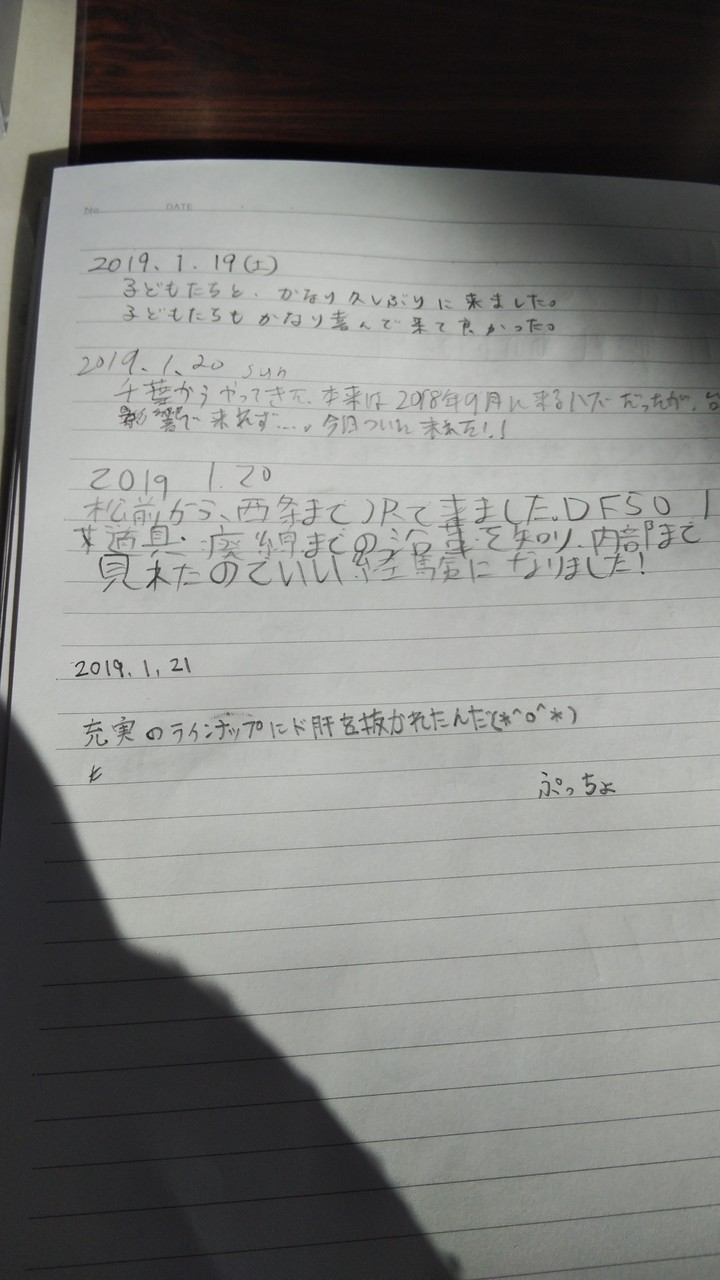 No. DATE
2019. 1. 19(土)
子どもたちと、かなり久しぶりに来ました。
子どもたちもかなり喜んで来て良かった。
2019. 1. 20 sun
千葉からやってきた。本来は2018年9月に来るハズだったが、台
影響で来れず…。今日ついに来れた!!
2019 1.20
松前から、西条までJRで来ました。DF50 1
道具・廃線までの沿革を知り、内部まで
見れたのでいい経験になりました!
2019. 1. 21
充実のラインナップにド肝を抜かれたんだ(*^o^*)
ぷっちょ